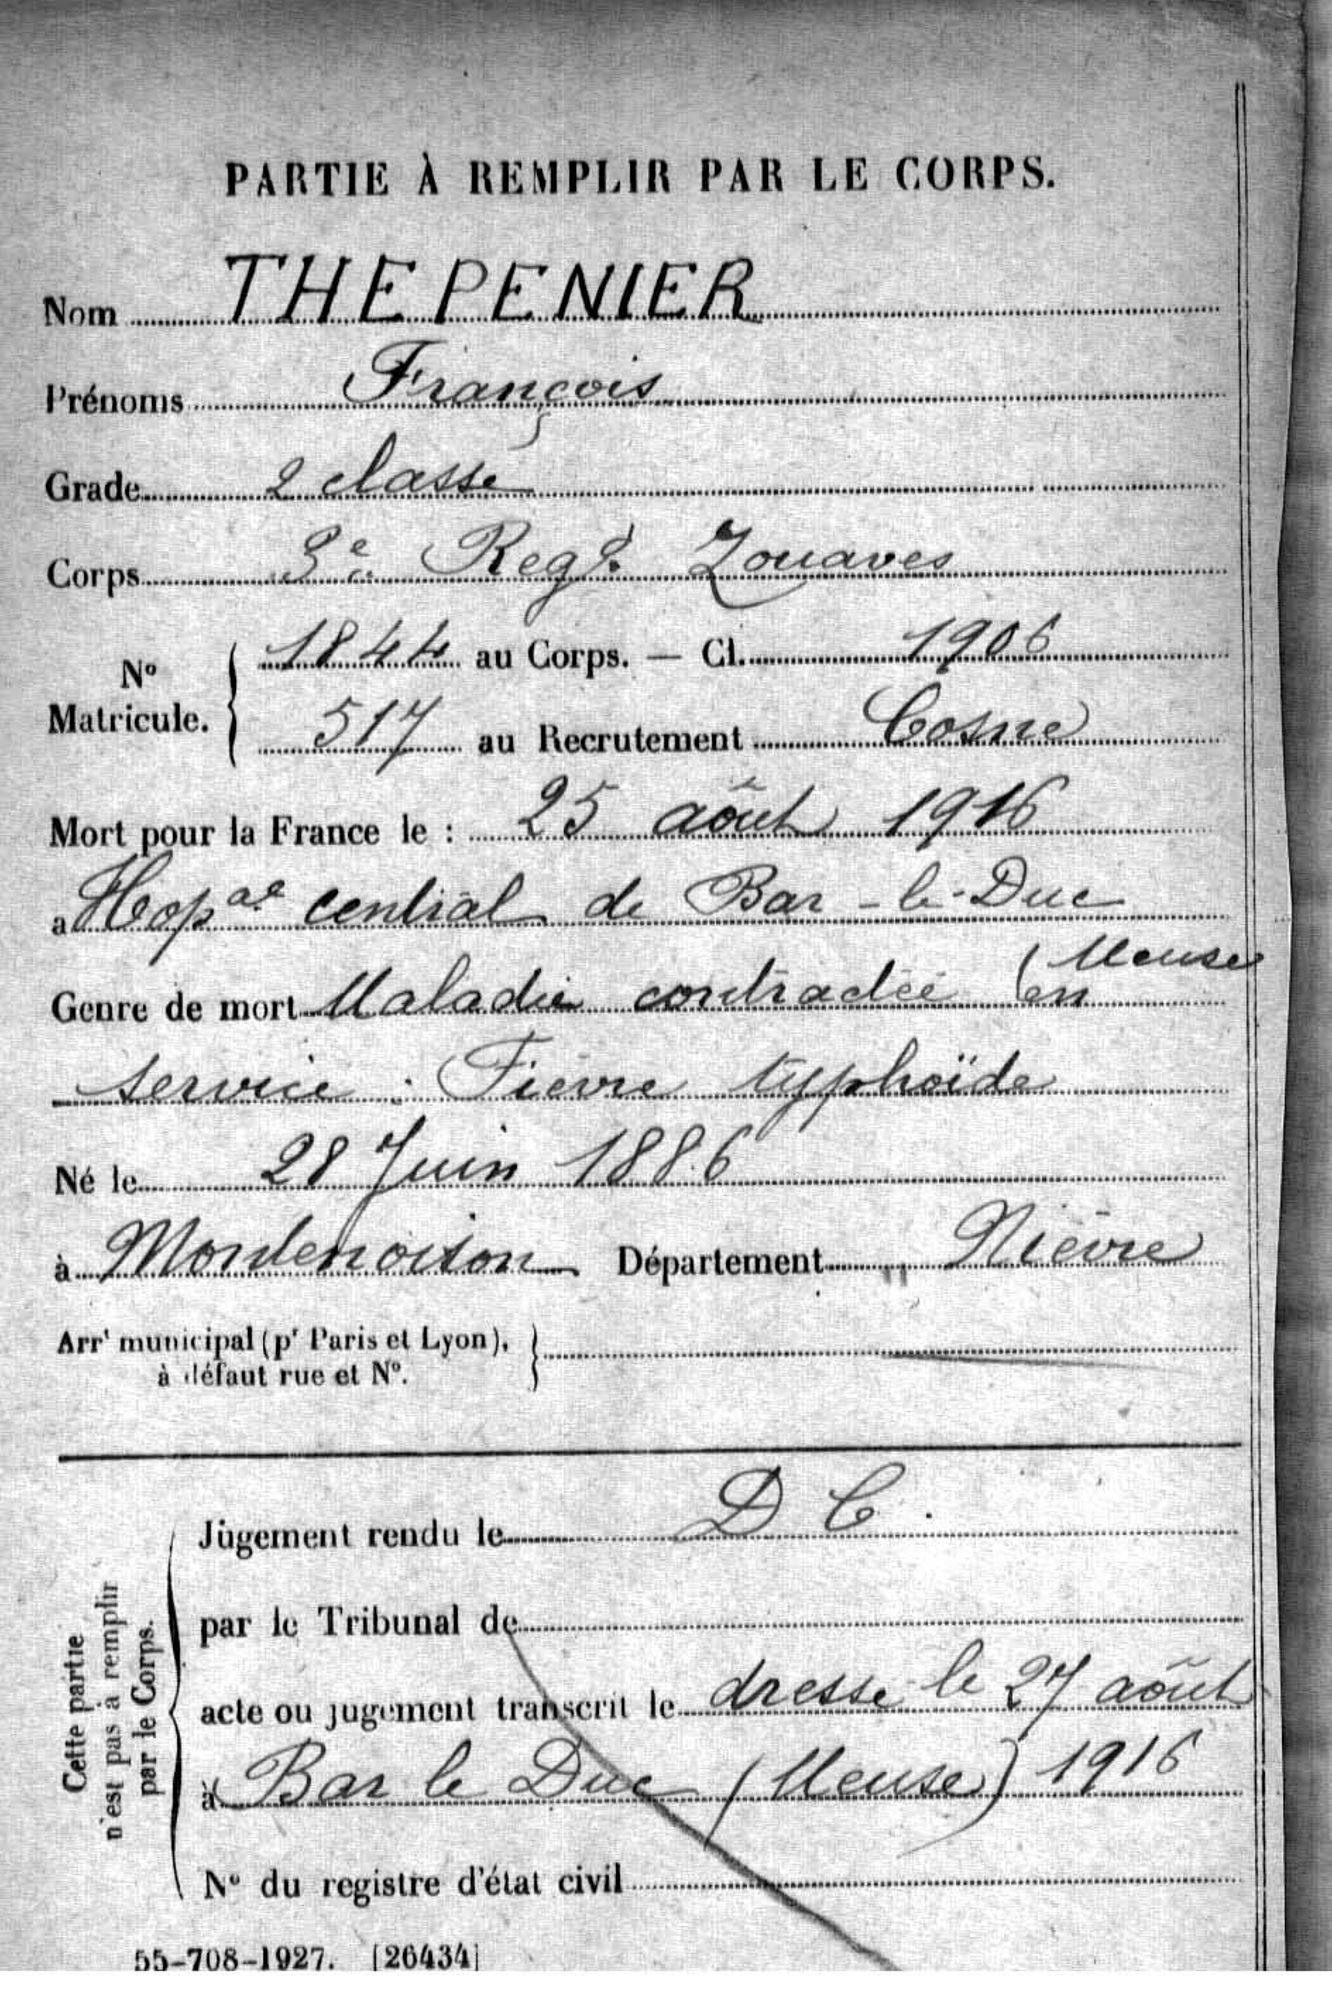 PARTIE À REMPLIR PAR LE CORPS.
Nom THEPENIER
Prénoms François
Grade 2 classe
Corps 3e Regt Zouaves
No Matricule. { 1844 au Corps. — Cl. 1906
517 au Recrutement Cosne
Mort pour la France le : 25 août 1916
à Hopal central de Bar-le-Duc
(Meuse
Genre de mort Maladie contractée en
service : Fièvre typhoïde
Né le 28 Juin 1886
à Montenoison Département Nièvre
Arrt municipal (pr Paris et Lyon),
à défaut rue et No. }
Cette partie
n'est pas à remplir
par le Corps.
Jugement rendu le D C.
par le Tribunal de
acte ou jugement transcrit le dressé le 27 août
à Bar le Duc (Meuse) 1916
No du registre d'état civil
55-708-1927. [26434]